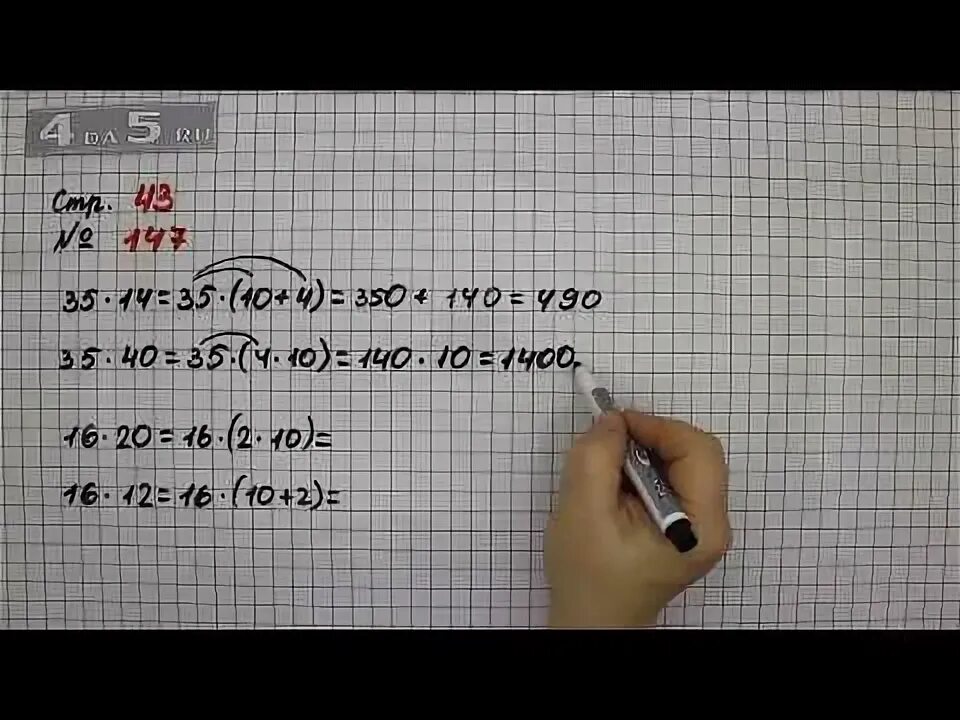 4 DA 5 .RU
Стр. 43
№ 147
35 · 14 = 35 · (10 + 4) = 350 + 140 = 490
35 · 40 = 35 · (4 · 10) = 140 · 10 = 1400
16 · 20 = 16 · (2 · 10) =
16 · 12 = 16 · (10 + 2) =